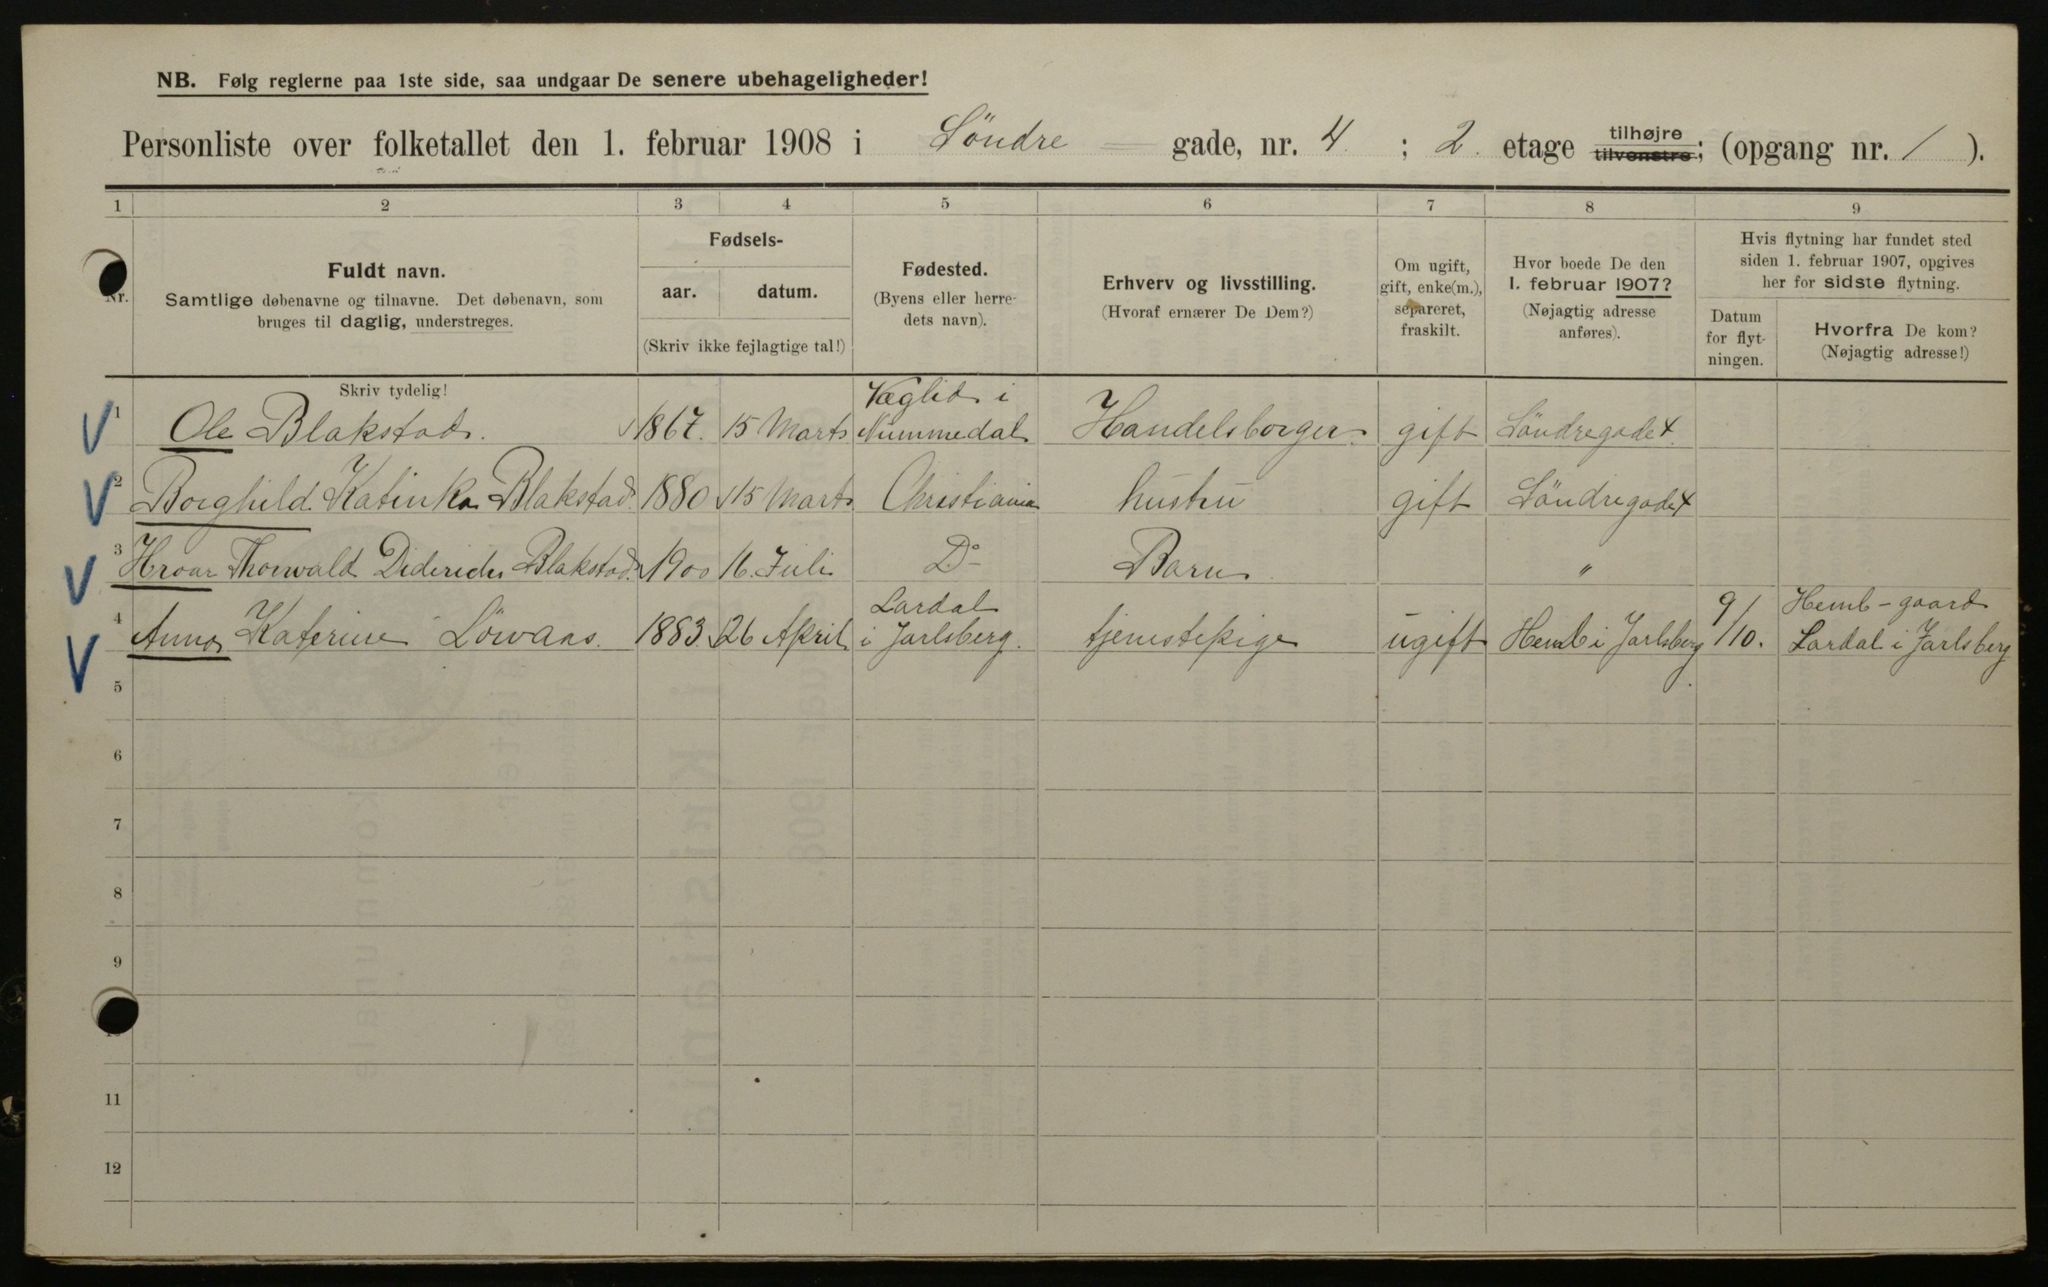 NB. Følg reglerne paa 1ste side, saa undgaar De senere ubehageligheder!
Personliste over folketallet den 1. februar 1908 i Söndre gade, nr. 4. ; 2. etage tilhøjre tilvenstre; (opgang nr. 1 ).
1 2 3 4 5 6 7 8 9
Nr.
Fuldt navn.
Samtlige døbenavne og tilnavne. Det døbenavn, som
bruges til daglig, understreges.
Skriv tydelig!
Fødsels-
aar. datum.
(Skriv ikke fejlagtige tal!)
Fødested.
(Byens eller herre-
dets navn).
Erhverv og livsstilling.
(Hvoraf ernærer De Dem?)
Om ugift,
gift, enke(m.),
separeret,
fraskilt.
Hvor boede De den
1. februar 1907?
(Nøjagtig adresse
anføres).
Hvis flytning har fundet sted
siden 1. februar 1907, opgives
her for sidste flytning.
Datum
for flyt-
ningen.
Hvorfra De kom?
(Nøjagtig adresse!)
Væglid i
1 Ole Blakstad. 1867. 15 Marts Nummedal Handelsborger. gift Söndregade 4.
2 Borghild Katinka Blakstad. 1880 15 Marts Christiania hustru gift Söndregade 4
3 Hroar Thorwald Diderichs Blakstad. 1900 16. Juli Do Barn "
Lardal 9/10. Hemb-gaard
4 Anna Katerine Löwaas. 1883. 26 April i Jarlsberg. tjenestepige ugift Hemb i Jarlsberg Lardal i Jarlsberg
5
6
7
8
9
10
11
12